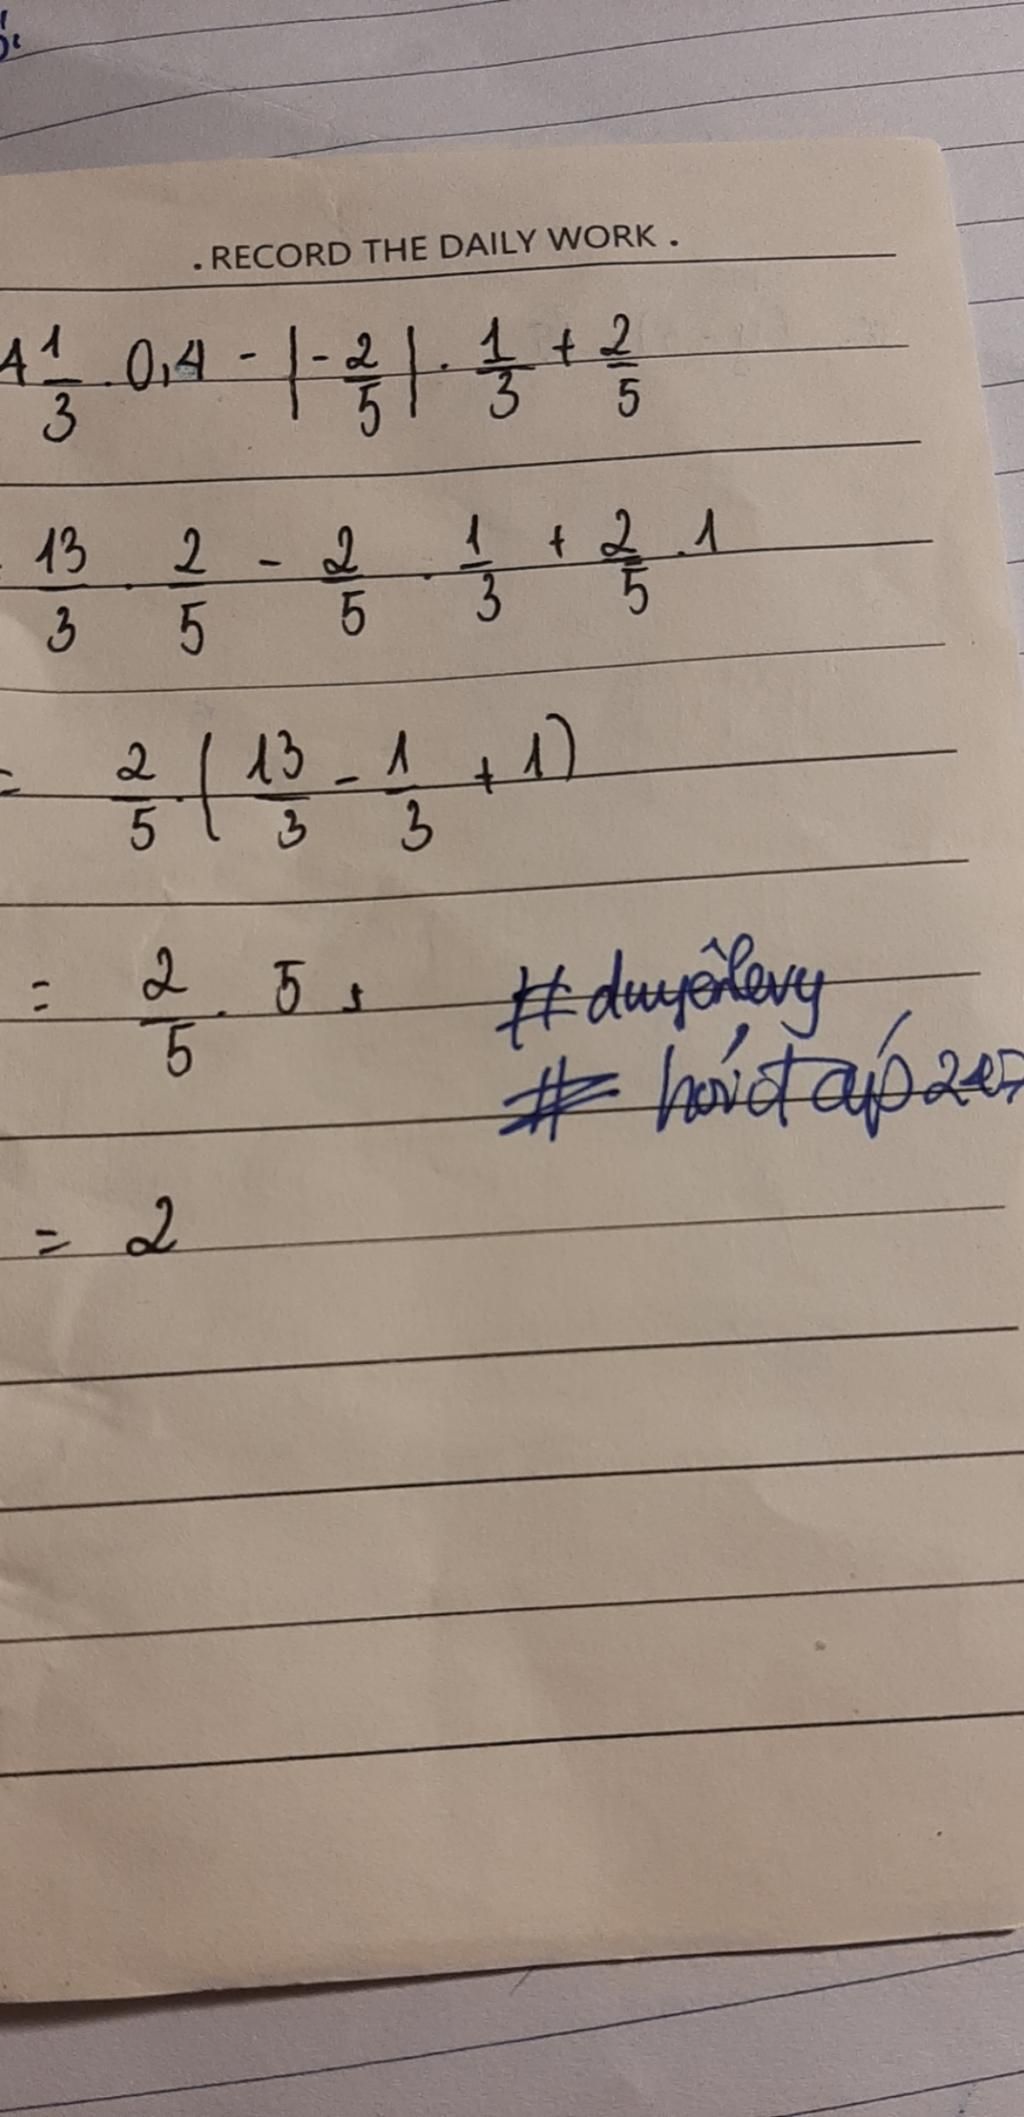 . RECORD THE DAILY WORK .
4 1/3 . 0,4 - |-2/5| . 1/3 + 2/5
13/3 . 2/5 - 2/5 . 1/3 + 2/5 . 1
= 2/5 . (13/3 - 1/3 + 1)
= 2/5 . 5
# hỏiđáp247
= 2